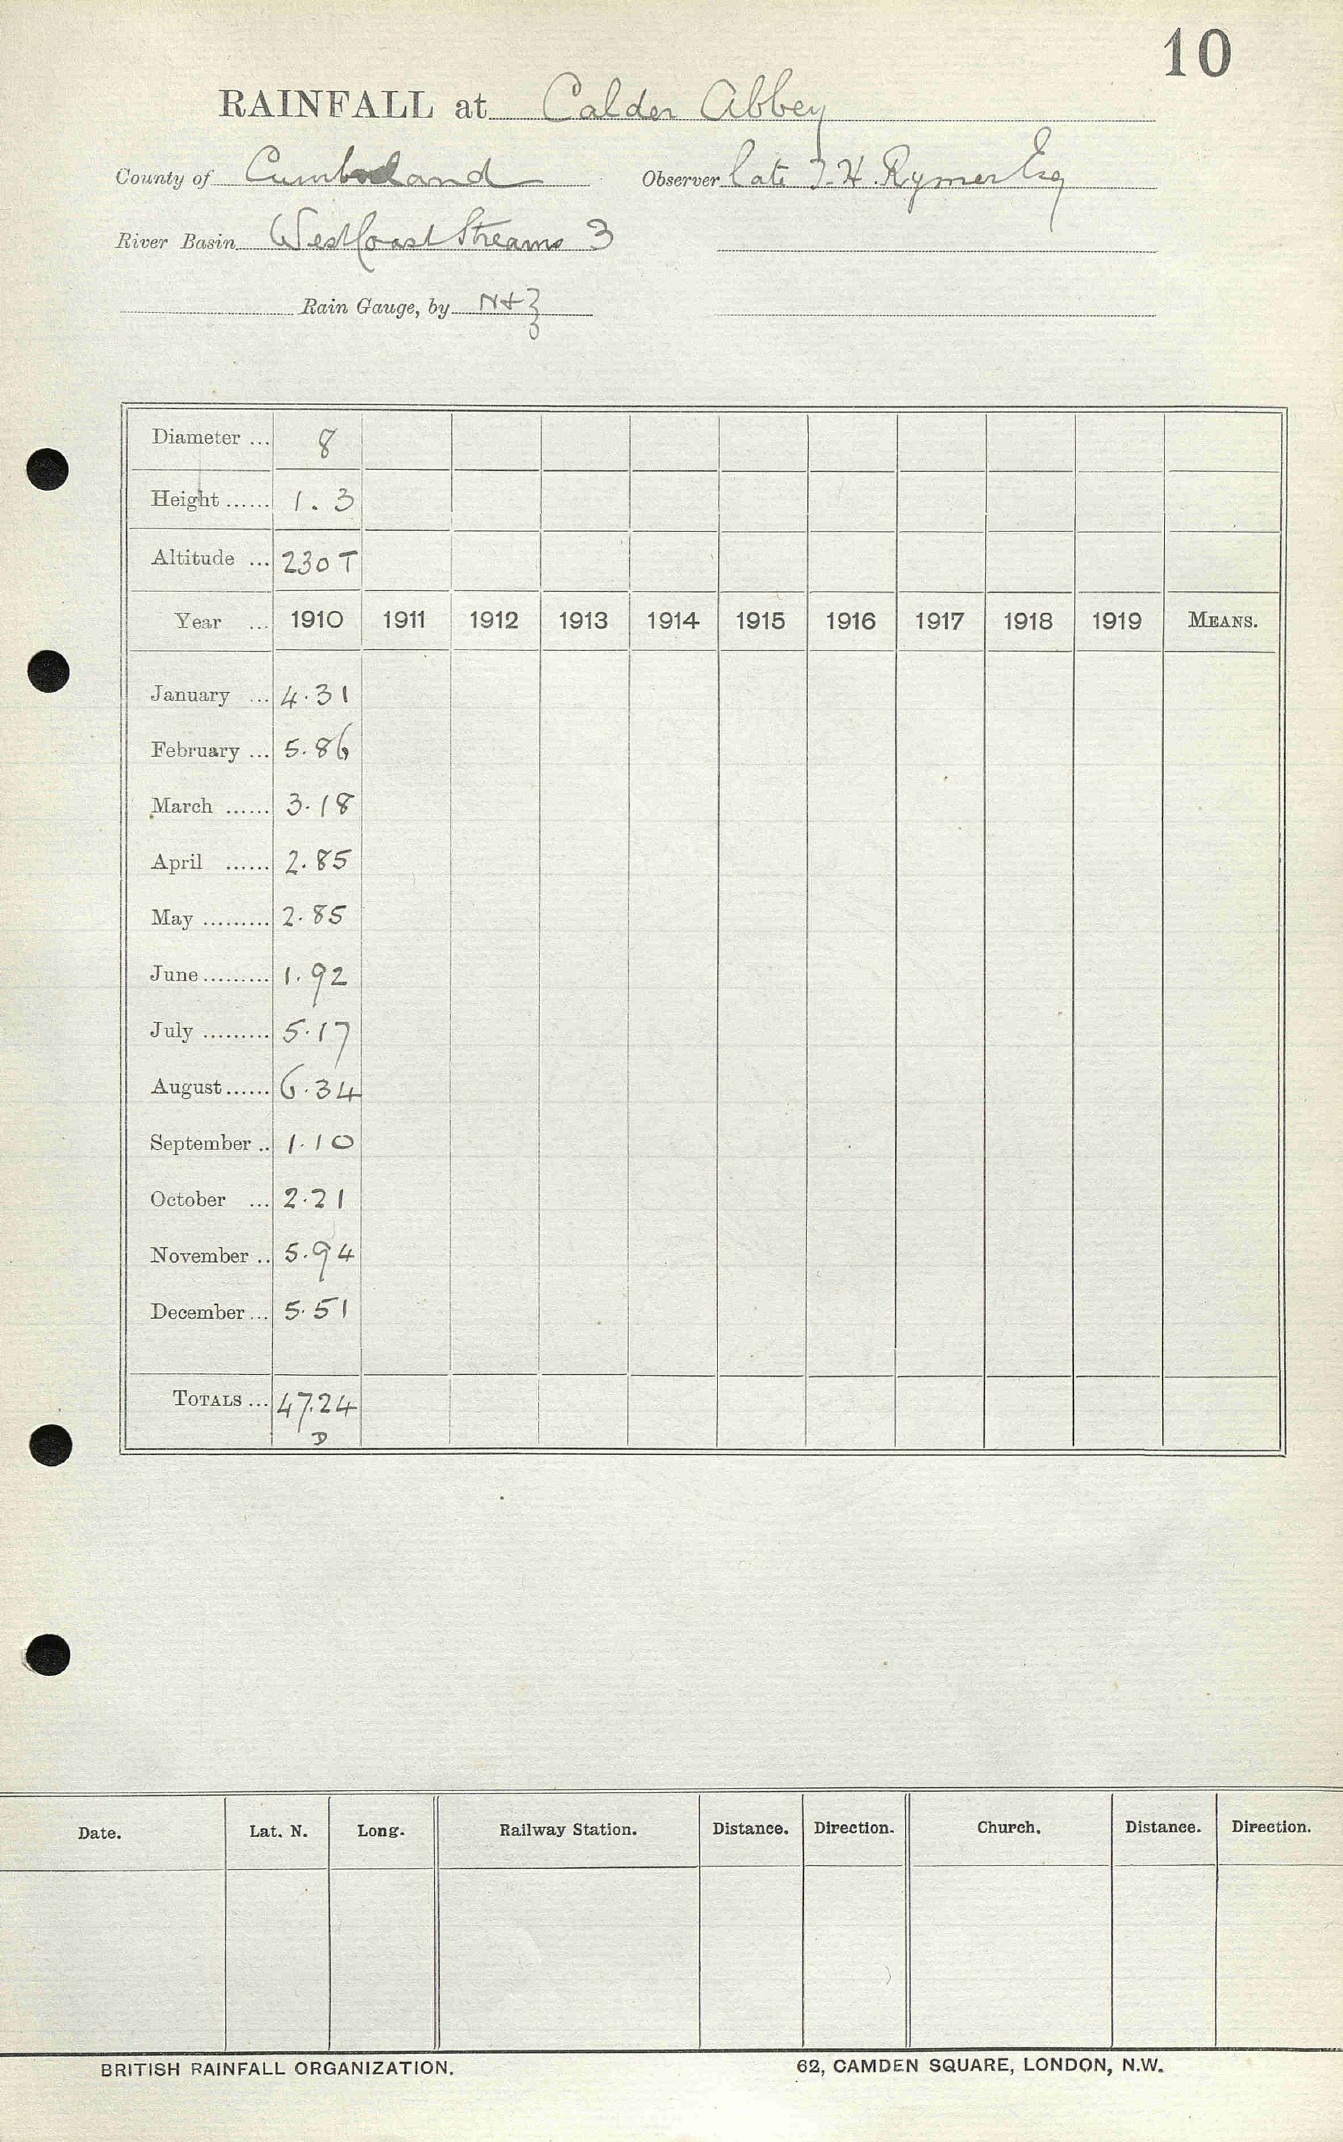 10
RAINFALL at Calder Abbey
County of Cumberland Observer late T. H. Rymer Esq
River Basin West Coast Streams 3
Rain Gauge, by N & Z
Diameter ... 8
Height ...... 1.3
Altitude ... 230 T
Year ... 1910 1911 1912 1913 1914 1915 1916 1917 1918 1919 MEANS.
January ... 4.31
February ... 5.86
March ...... 3.18
April ...... 2.85
May ......... 2.85
June ......... 1.92
July ......... 5.17
August ...... 6.34
September .. 1.10
October ... 2.21
November .. 5.94
December ... 5.51
TOTALS ... 47.24
D
Date. Lat. N. Long. Railway Station. Distance. Direction. Church. Distance. Direction.
BRITISH RAINFALL ORGANIZATION. 62, CAMDEN SQUARE, LONDON, N.W.